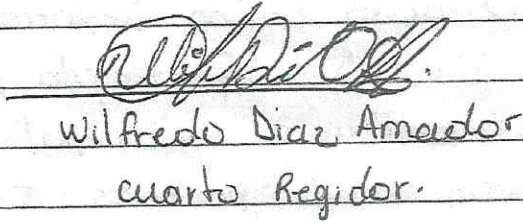 Wilfredo Diaz Amador
cuarto Regidor.